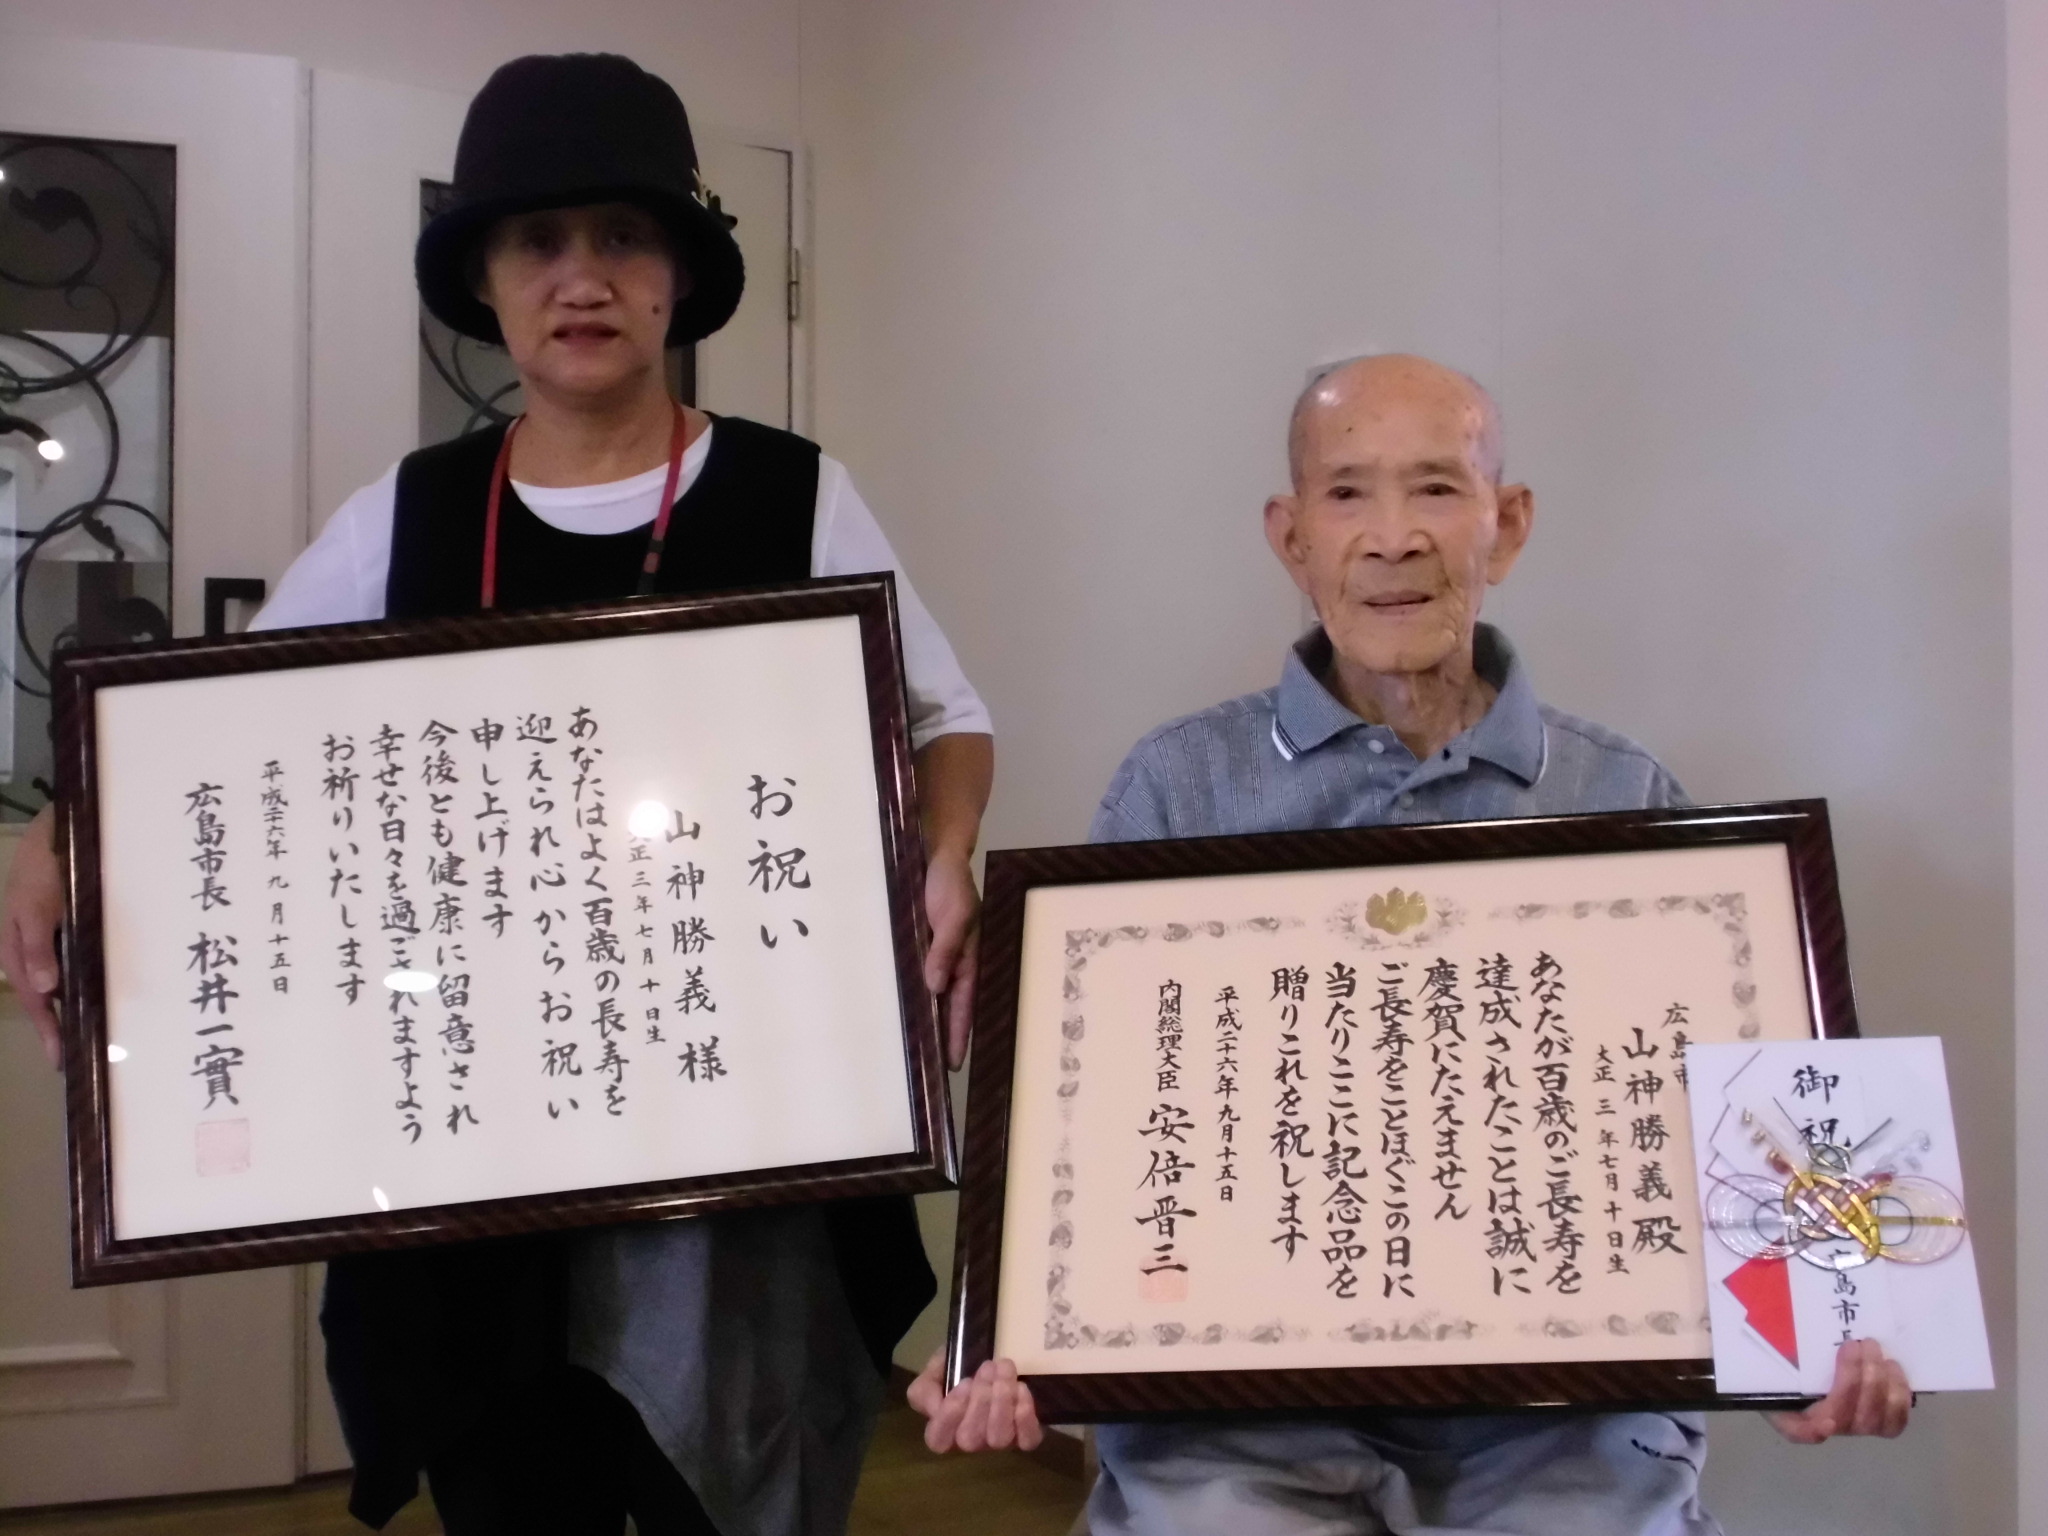 お祝い
山神勝義様
正三年七月十日生
あなたはよく百歳の長寿を
迎えられ心からお祝い
申し上げます
今後とも健康に留意され
幸せな日々を過ごされますよう
お祈りいたします
平成二十六年九月十五日
広島市長 松井一實
広島市
山神勝義殿
大正三年七月十日生
あなたが百歳のご長寿を
達成されたことは誠に
慶賀にたえません
ご長寿をことほぐこの日に
当たりここに記念品を
贈りこれを祝します
平成二十六年九月十五日
内閣総理大臣 安倍晋三
御祝
島市長